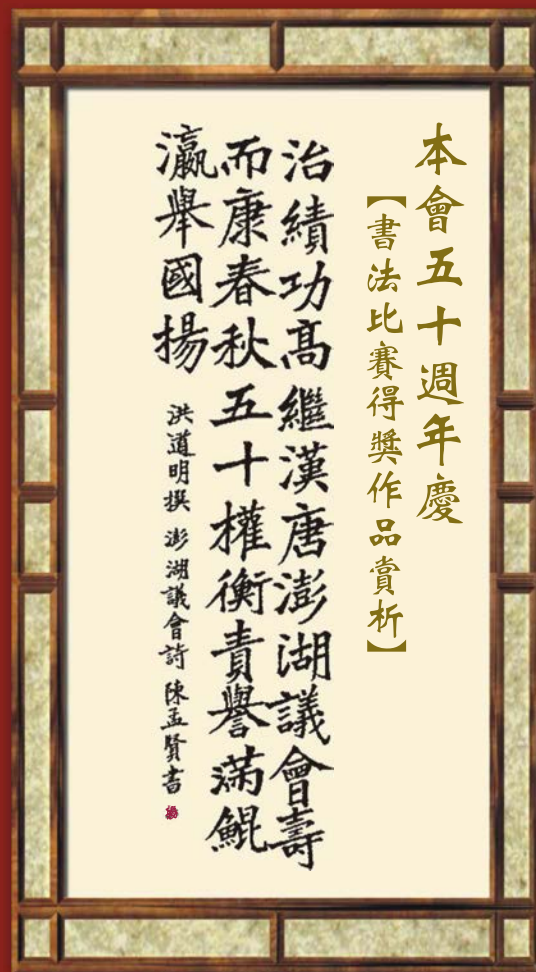 本會五十週年慶
【書法比賽得獎作品賞析】
治績功高繼漢唐澎湖議會壽
而康春秋五十權衡責譽滿鯤
瀛舉國揚
洪道明撰 澎湖議會詩 陳孟賢書